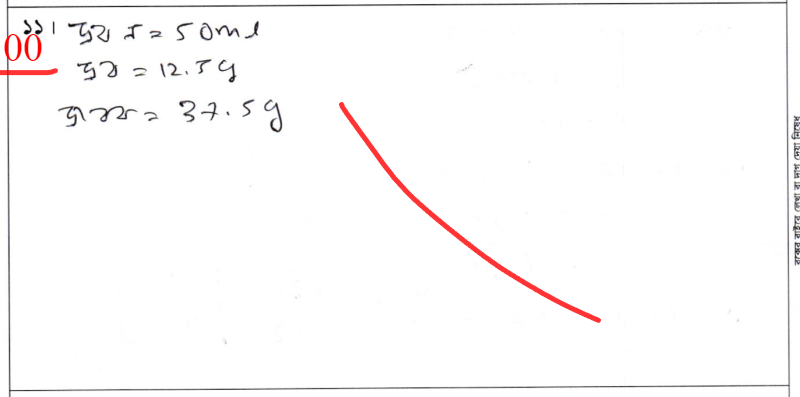 ১১। দ্রবণ = 50ml
00
দ্রব = 12.5g
দ্রাবক = 37.5g
বক্সের বাইরে লেখা বা দাগ দেয়া নিষেধ